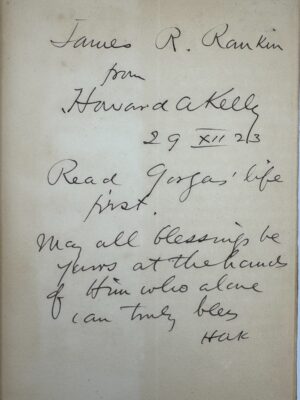 James R. Rankin
from
Howard A Kelly
29 XII 23
Read Gorgas' life
first.
May all blessings be
yours at the hands
of Him who alone
can truly bless
HAK